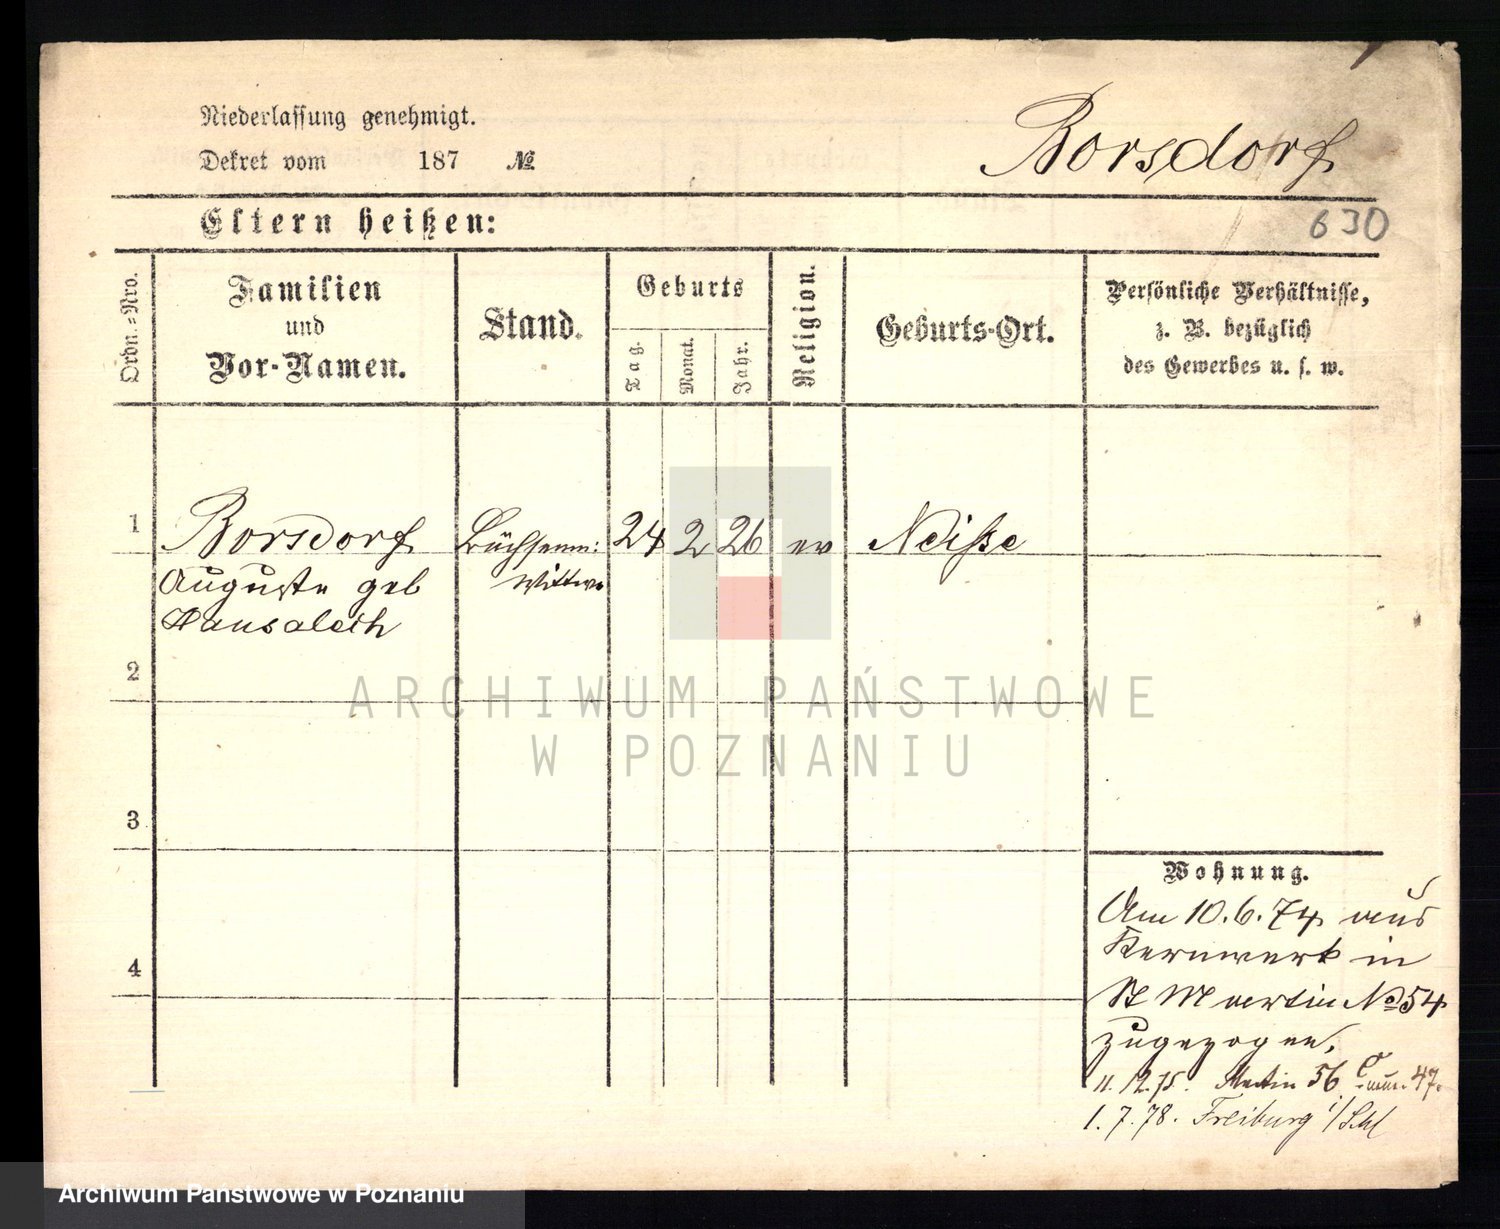 Niederlassung genehmigt.
Dekret vom 187 №
Borsdorf
Eltern heißen:
630
Ordn.-Nro.
Familien
und
Vor-Namen.
Stand.
Geburts
Tag.
Monat.
Jahr.
Religion.
Geburts-Ort.
Persönliche Verhältnisse,
z. B. bezüglich
des Gewerbes u. s. w.
1 Borsdorf Büchsenm: 24 2 26 ev Neisse
Auguste geb Wittwe
2
3
4
Wohnung.
Am 10.6.74 aus
Kernwerk in
St Martin No 54
zugezogen.
11.12.75. Martin 56 47.
1.7.78. Freiburg i/Schl
ARCHIWUM PAŃSTWOWE
W POZNANIU
Archiwum Państwowe w Poznaniu